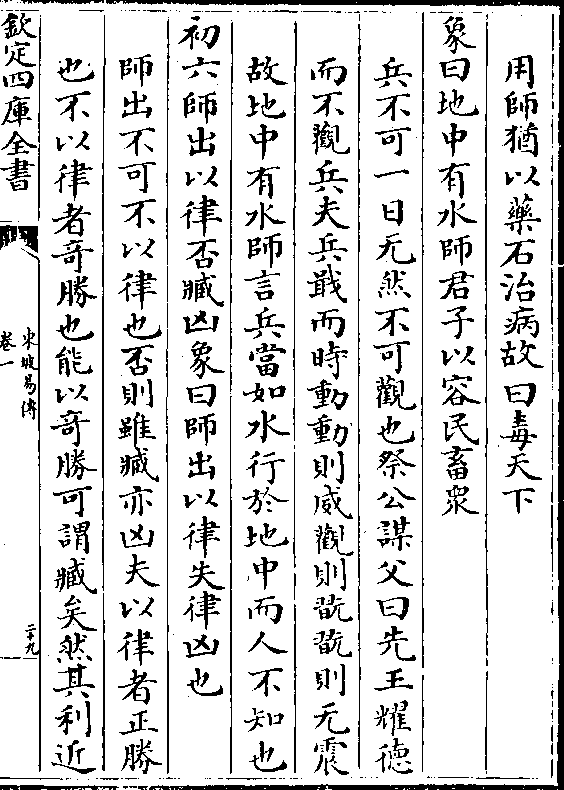 用師猶以藥石治病故曰毒天下
象曰地中有水師君子以容民畜衆
兵不可一日无然不可觀也祭公謀父曰先王耀德
而不觀兵夫兵戢而時動動則威觀則翫翫則无震
故地中有水師言兵當如水行於地中而人不知也
初六師出以律否臧凶象曰師出以律失律凶也
師出不可不以律也否則雖臧亦凶夫以律者正勝
也不以律者奇勝也能以奇勝可謂臧矣然其利近
欽定四庫全書
東坡易傳
卷一
二十九